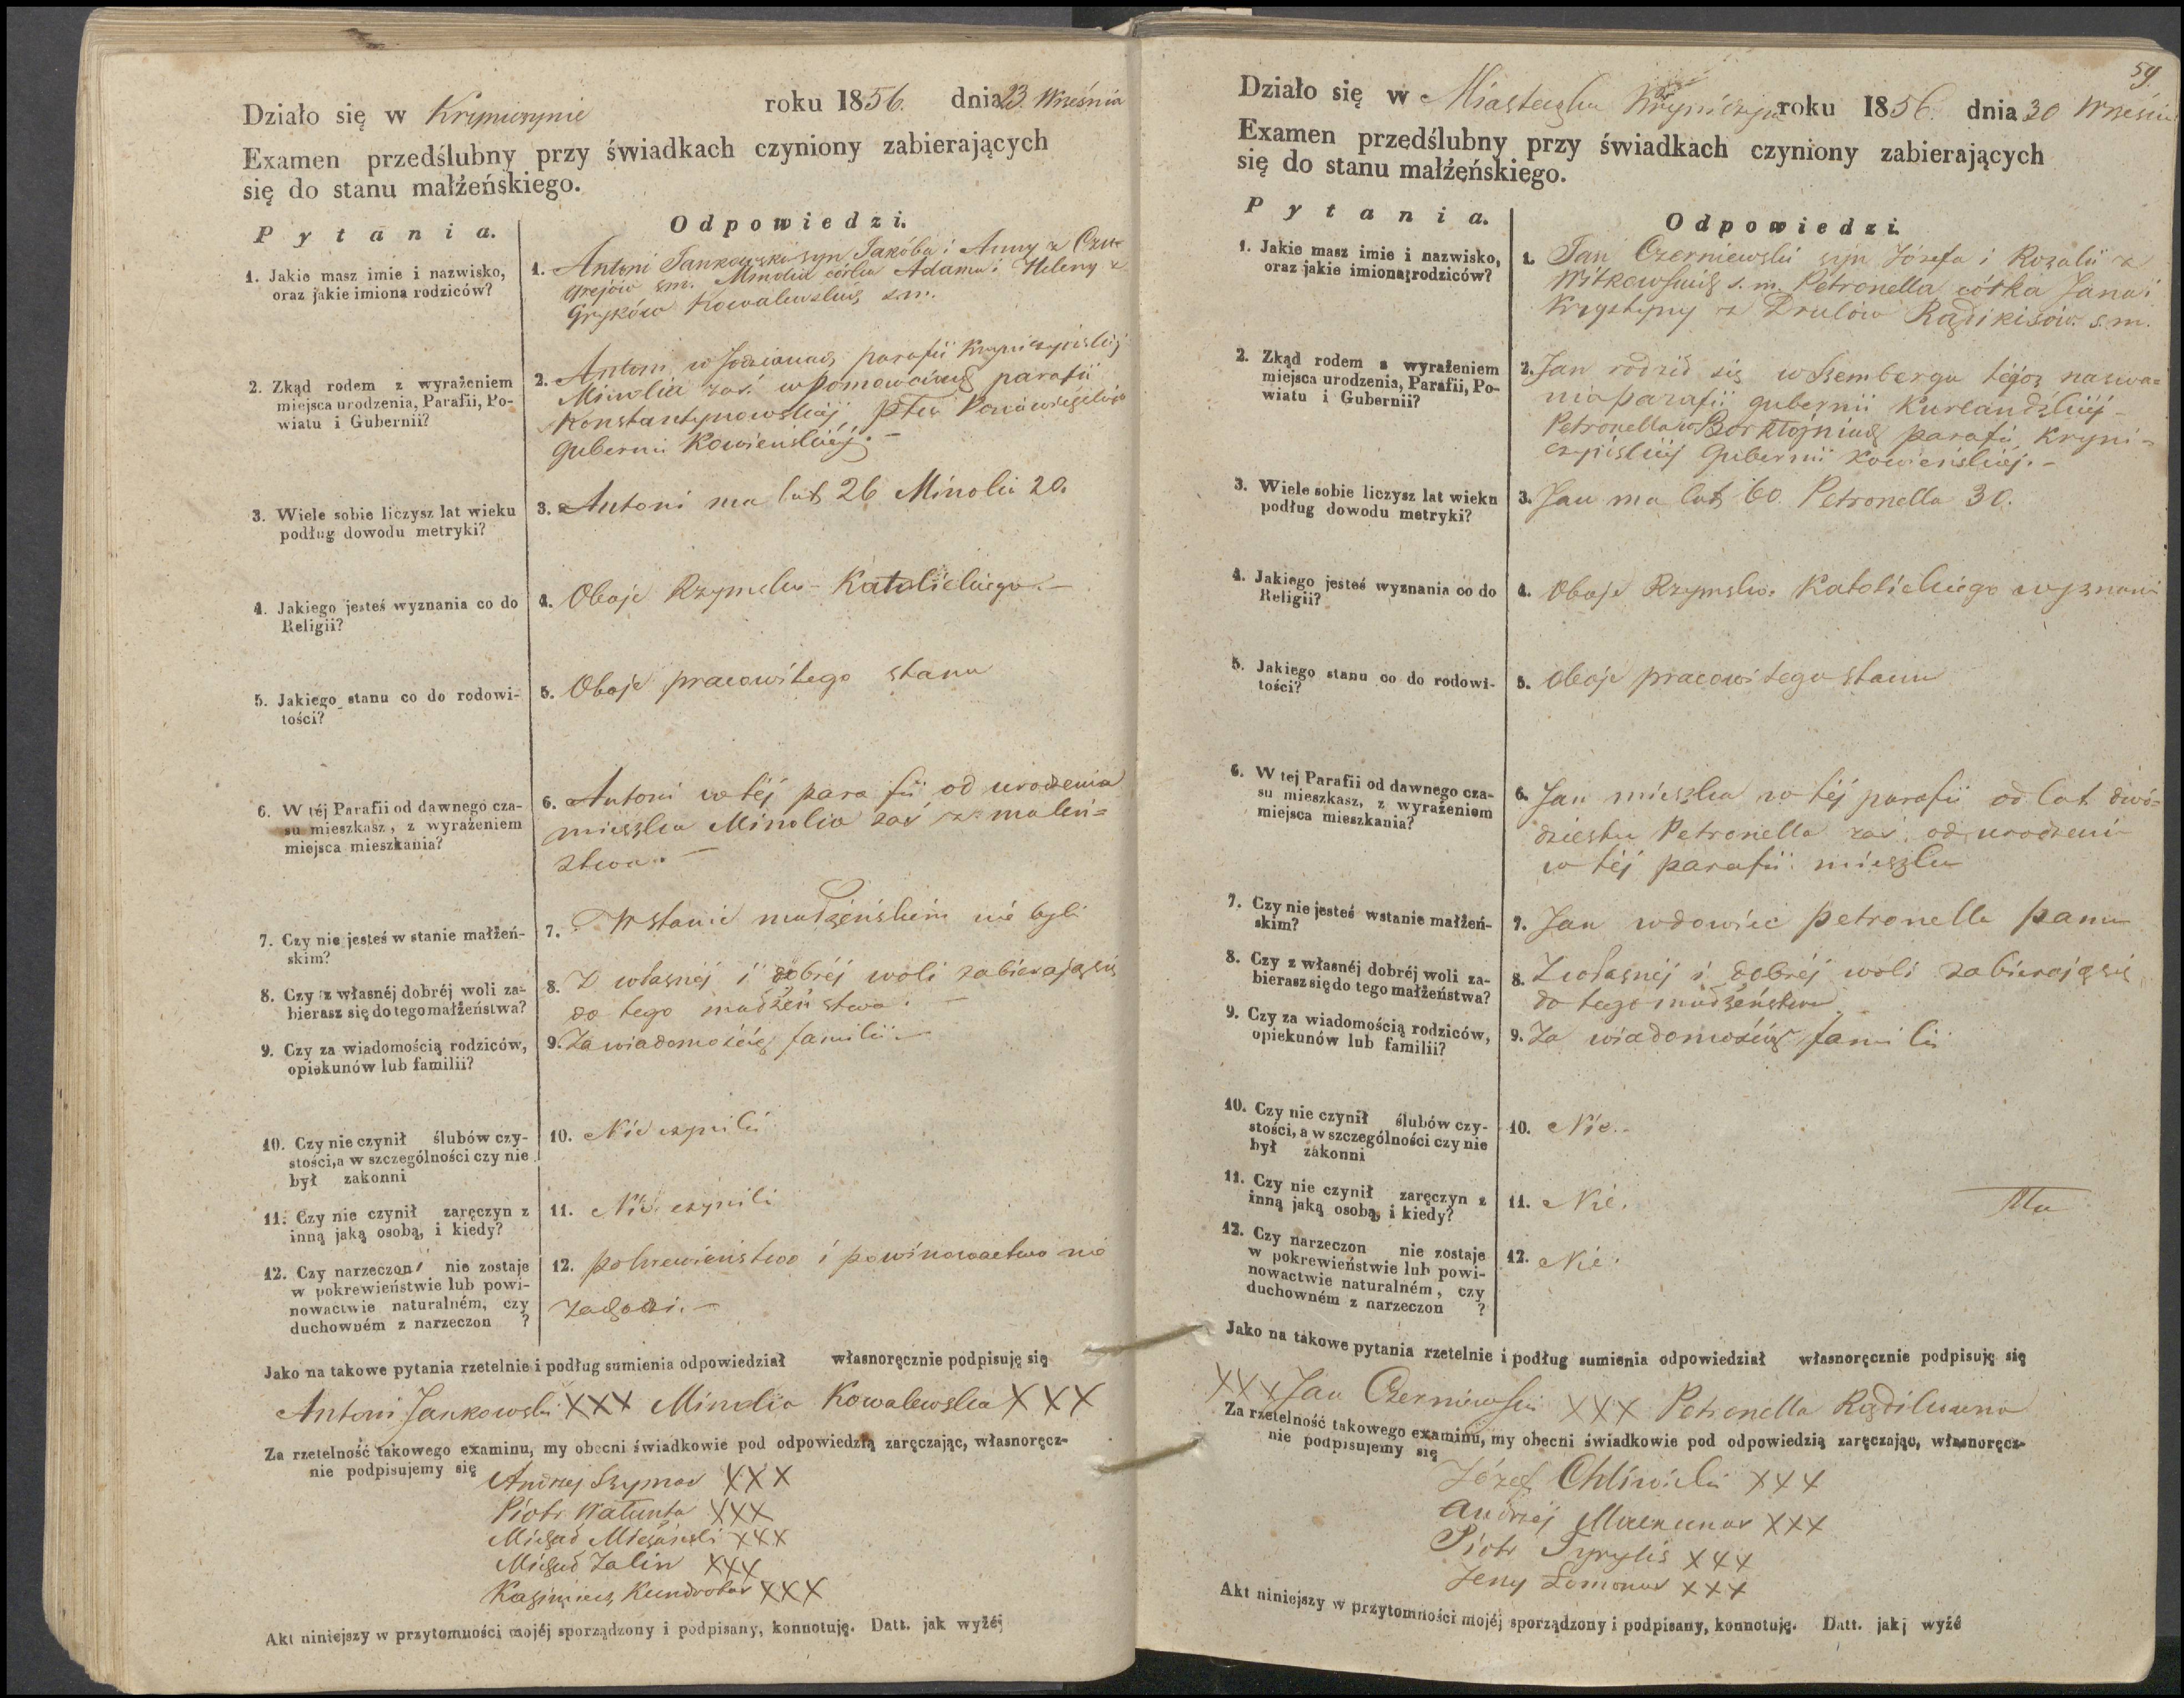 Działo się w Krynicznie roku 1856. dnia 23. Września
Examen przedślubny przy świadkach czyniony zabierających
się do stanu małżeńskiego.
Pytania.
Odpowiedzi.
1. Jakie masz imie i nazwisko,
oraz jakie imiona rodziców?
1. Antoni Jankowski syn Jakóba i Anny z
sm. Minolia córka Adama i Heleny z
Gryków Kowalewskich s.m.
2. Zkąd rodem z wyrażeniem
miejsca urodzenia, Parafii, Po-
wiatu i Gubernii?
2. Antoni w parafii
Minolia zaś w parafii
Konstantynowskiéj ptu
Gubernii Kowieńskiéj.-
3. Wiele sobie liczysz lat wieku
podług dowodu metryki?
3. Antoni ma lat 26 Minolia 20.
4. Jakiego jesteś wyznania co do
Religii?
4. Oboje Rzymsko-Katolickiego.-
5. Jakiego stanu co do rodowi-
tości?
5. Oboje pracowitego stanu
6. W téj Parafii od dawnego cza-
su mieszkasz, z wyrażeniem
miejsca mieszkania?
6. Antoni w téj parafii od urodzenia
mieszka Minolia zaś z maleń=
ztwa.-
7. Czy nie jesteś w stanie małżeń-
skim?
7. W stanie małżeńskim nie byli
8. Czy z własnéj dobréj woli za-
bierasz się do tego małżeństwa?
8. Z własnéj i dobréj woli zabierają się
do tego małżeństwa.-
9. Czy za wiadomością rodziców,
opiekunów lub familii?
9. Za wiadomością familii.-
10. Czy nie czynił ślubów czy-
stości, a w szczególności czy nie
był zakonni
10. Nie czynili
11. Czy nie czynił zaręczyn z
inną jaką osobą, i kiedy?
11. Nie czynili
12. Czy narzeczoni nie zostaje
w pokrewieństwie lub powi-
nowactwie naturalném, czy
duchowném z narzeczon ?
12. pokrewieństwo i powinowactwo nie
zachodzi.-
Jako na takowe pytania rzetelnie i podług sumienia odpowiedział własnoręcznie podpisuję się
Antoni Jankowski XXX Minolia Kowalewska XXX
Za rzetelność takowego examinu, my obecni świadkowie pod odpowiedzią zaręczając, własnoręcz-
nie podpisujemy się
Andrzej Szymas XXX
Piotr Wałunta XXX
Michał XXX
Michał Zalin XXX
Kazimierz Kundrotas XXX
Akt niniejszy w przytomności mojéj sporządzony i podpisany, konnotuję. Datt. jak wyżéj
59.
Działo się w Miasteczku roku 1856. dnia 30 Wrześni
Examen przedślubny przy świadkach czyniony zabierających
się do stanu małżeńskiego.
Pytania.
Odpowiedzi.
1. Jakie masz imie i nazwisko,
oraz jakie imiona rodziców?
1. Jan Czerniewski syn Józefa i Rozalii z
Witkowskich s.m. Petronella córka Jana i
Krystyny z Drulów Radikisów s.m.
2. Zkąd rodem z wyrażeniem
miejsca urodzenia, Parafii, Po-
wiatu i Gubernii?
2. Jan rodził się w tégoż nazwa=
nia parafii gubernii Kurlandskiéj-
Petronella w parafii Kryni=
czyńskiéj Gubernii Kowieńskiéj.-
3. Wiele sobie liczysz lat wieku
podług dowodu metryki?
3. Jan ma lat 60. Petronella 30.
4. Jakiego jesteś wyznania co do
Religii?
4. Oboje Rzymsko. Katolickiego wyznani
5. Jakiego stanu co do rodowi-
tości?
5. oboje pracowitego stanu
6. W tej Parafii od dawnego cza-
su mieszkasz, z wyrażeniem
miejsca mieszkania?
6. Jan mieszka w téj parafii od lat dwó=
dziestu Petronella zaś od urodzeni
w téj parafii mieszka
7. Czy nie jesteś wstanie małżeń-
skim?
7. Jan wdowiec petronella panna
8. Czy z własnéj dobréj woli za-
bierasz się do tego małżeństwa?
8. Z własnéj i dobréj woli zabierają się
do tego małżeństwa
9. Czy za wiadomością rodziców,
opiekunów lub familii?
9. Za wiadomością familii
10. Czy nie czynił ślubów czy-
stości, a w szczególności czy nie
był zakonni
10. Nie.-
11. Czy nie czynił zaręczyn z
inną jaką osobą, i kiedy?
11. Nie.
12. Czy narzeczon nie zostaje
w pokrewieństwie lub powi-
nowactwie naturalném, czy
duchowném z narzeczon ?
12. Nie.
Jako na takowe pytania rzetelnie i podług sumienia odpowiedział własnoręcznie podpisuję się
XXX Jan Czerniewski XXX Petronella
Za rzetelność takowego examinu, my obecni świadkowie pod odpowiedzią zaręczając, własnoręcz-
nie podpisujemy się
Józef Chliwicki XXX
Andrzéj XXX
Piotr Syrylis XXX
XXX
Akt niniejszy w przytomności mojéj sporządzony i podpisany, konnotuję. Datt. jak wyżé